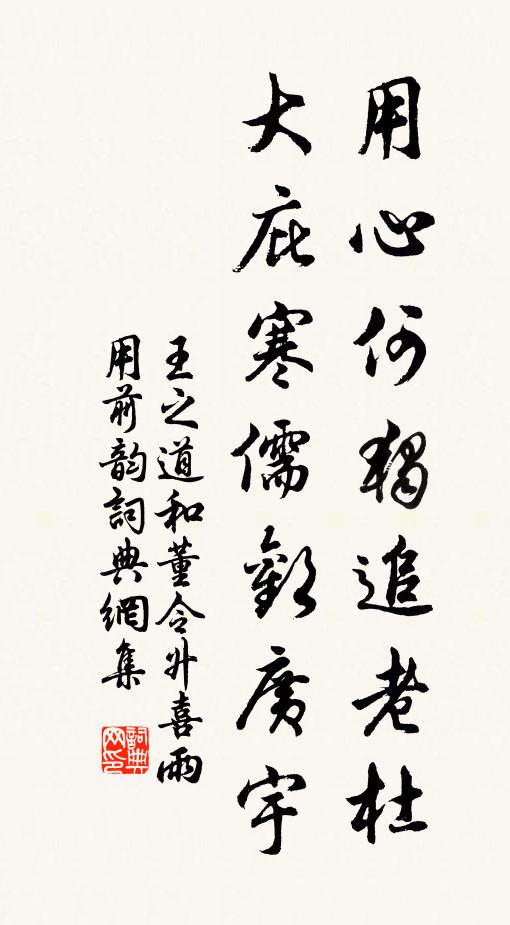 用心何獨追老杜
大庇寒儒歡廣宇
王之道和董令升喜雨
用前韵詞典網集
詞典網印